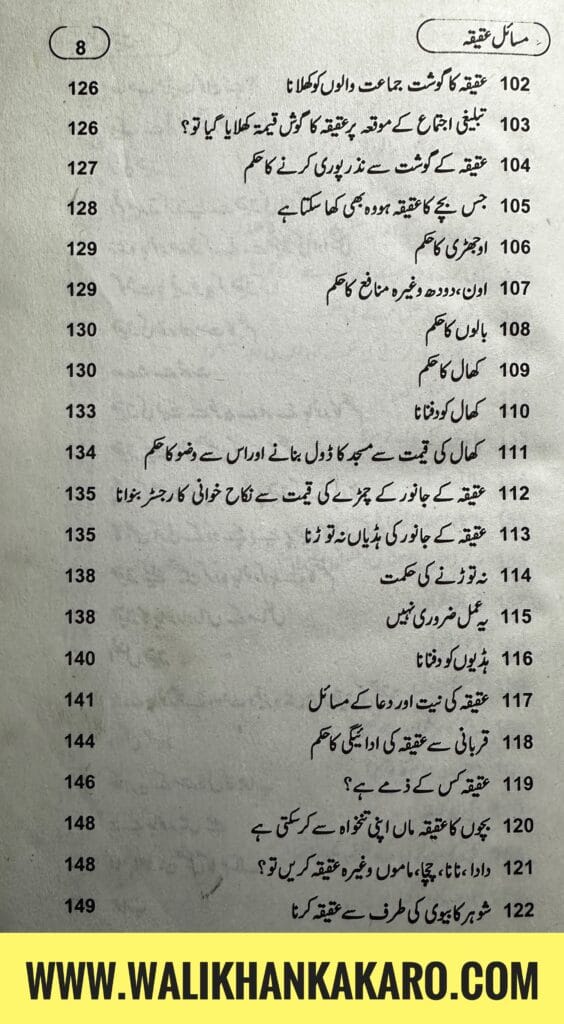 مسائل عقیقہ
8
102 عقیقہ کا گوشت جماعت والوں کو کھلانا 126
103 تبلیغی اجتماع کے موقعہ پر عقیقہ کا گوش قیمۃ کھلایا گیا تو؟ 126
104 عقیقہ کے گوشت سے نذر پوری کرنے کا حکم 127
105 جس بچے کا عقیقہ ہو وہ بھی کھا سکتا ہے 128
106 اوجھڑی کا حکم 129
107 اون، دودھ وغیرہ منافع کا حکم 129
108 بالوں کا حکم 130
109 کھال کا حکم 130
110 کھال کو دفنانا 133
111 کھال کی قیمت سے مسجد کا ڈول بنانے اور اس سے وضو کا حکم 134
112 عقیقہ کے جانور کے چمڑے کی قیمت سے نکاح خوانی کا رجسٹر بنوانا 135
113 عقیقہ کے جانور کی ہڈیاں نہ توڑنا 135
114 نہ توڑنے کی حکمت 138
115 یہ عمل ضروری نہیں 138
116 ہڈیوں کو دفنانا 140
117 عقیقہ کی نیت اور دعا کے مسائل 141
118 قربانی سے عقیقہ کی ادائیگی کا حکم 144
119 عقیقہ کس کے ذمے ہے؟ 146
120 بچوں کا عقیقہ ماں اپنی تنخواہ سے کر سکتی ہے 148
121 دادا، نانا، چچا، ماموں وغیرہ عقیقہ کریں تو؟ 148
122 شوہر کا بیوی کی طرف سے عقیقہ کرنا 149
WWW.WALIKHANKAKARO.COM